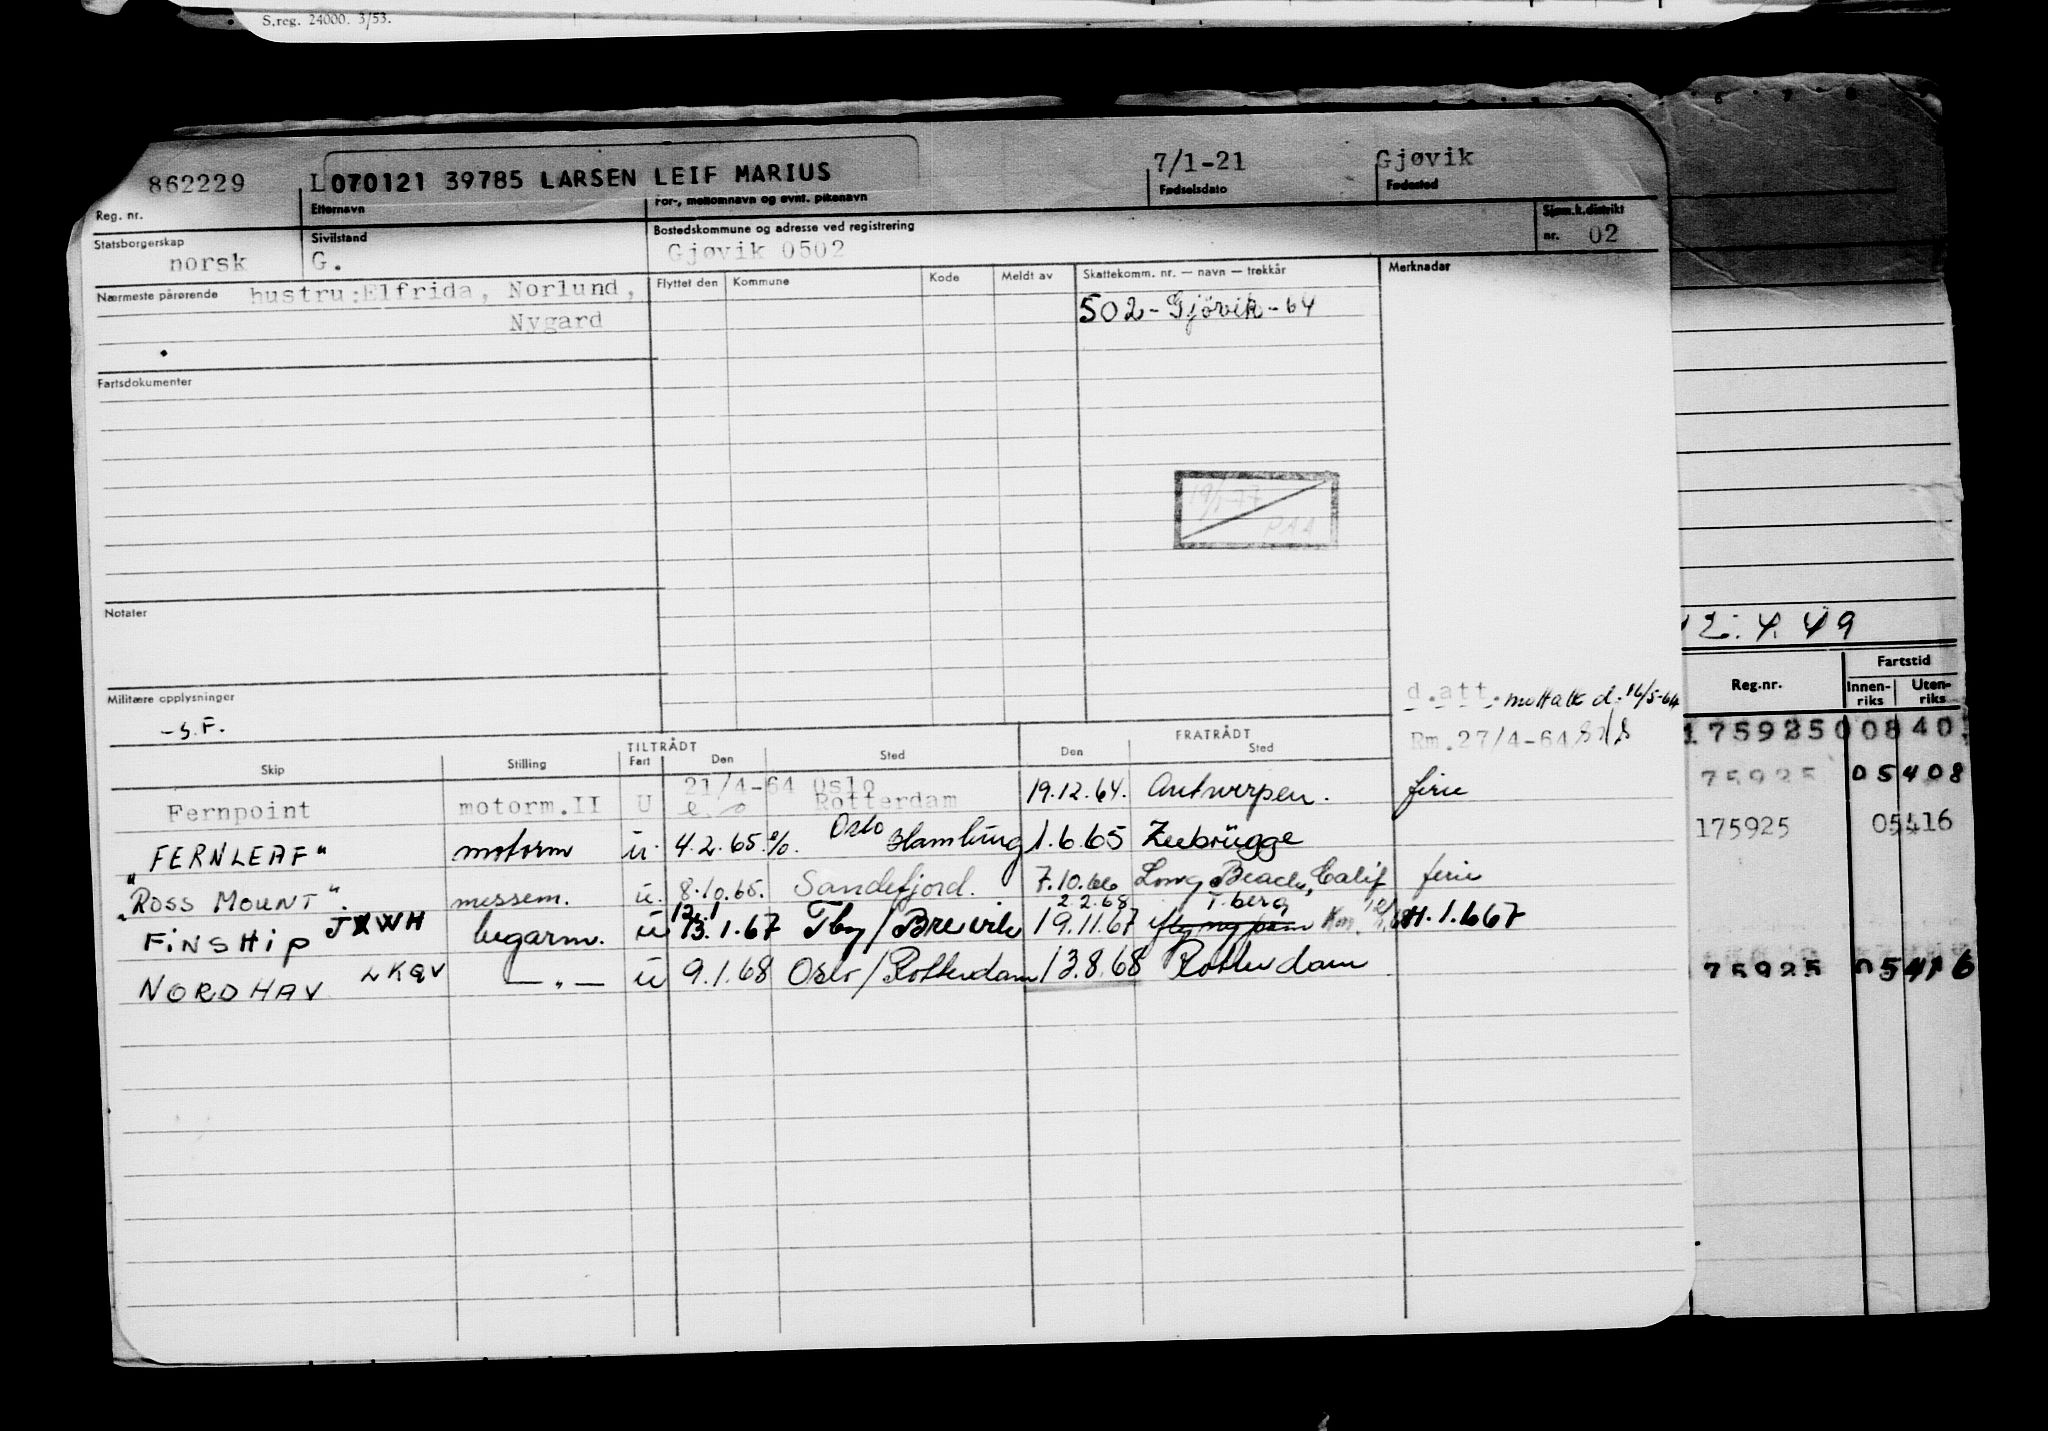 S.reg. 24000. 3/53.
862229 L070121 39785 LARSEN LEIF MARIUS 7/1-21 Gjøvik
Reg. nr. Etternavn For-, mellomnavn og evnt. pikenavn Fødselsdato Fødested
Statsborgerskap Sivilstand Bostedskommune og adresse ved registrering Sjøm.k.distrikt
norsk G. Gjøvik 0502 nr. 02
Nærmeste pårørende hustru:Elfrida, Norlund, Flyttet den Kommune Kode Meldt av Skattekomm. nr. — navn — trekkår Merknader
Nygard 502-Gjövik-64
Fartsdokumenter
Notater
12.4.49
Militære opplysninger d.att. mottatt d. 16/5-64
-s.F. Rm.27/4-64
Reg.nr. Fartstid
Innen-riks Uten-riks
TILTRÅDT FRATRÅDT
Skip Stilling Fart Den Sted Den Sted
21/4-64 Oslo
Fernpoint motorm.II U Rotterdam 19.12.64. Antwerpen. ferie
"FERNLEAF" motorm u. 4.2.65. Oslo Hamburg 1.6.65 Zeebrügge
"ROSS MOUNT". messem. u. 8.10.65. Sandefjord. 7.10.66 Long Beach, Calif ferie
2.2.68 T.berg
FINSHIP JXWH lugarm. u 13.1.67 Tbg/Brevik 19.11.67 H.1.667
NORDHAV LKGV —"— u 9.1.68 Oslo/Rotterdam 13.8.68 Rotterdam
175925 0 08 40
75925 05408
175925 05416
75925 05416